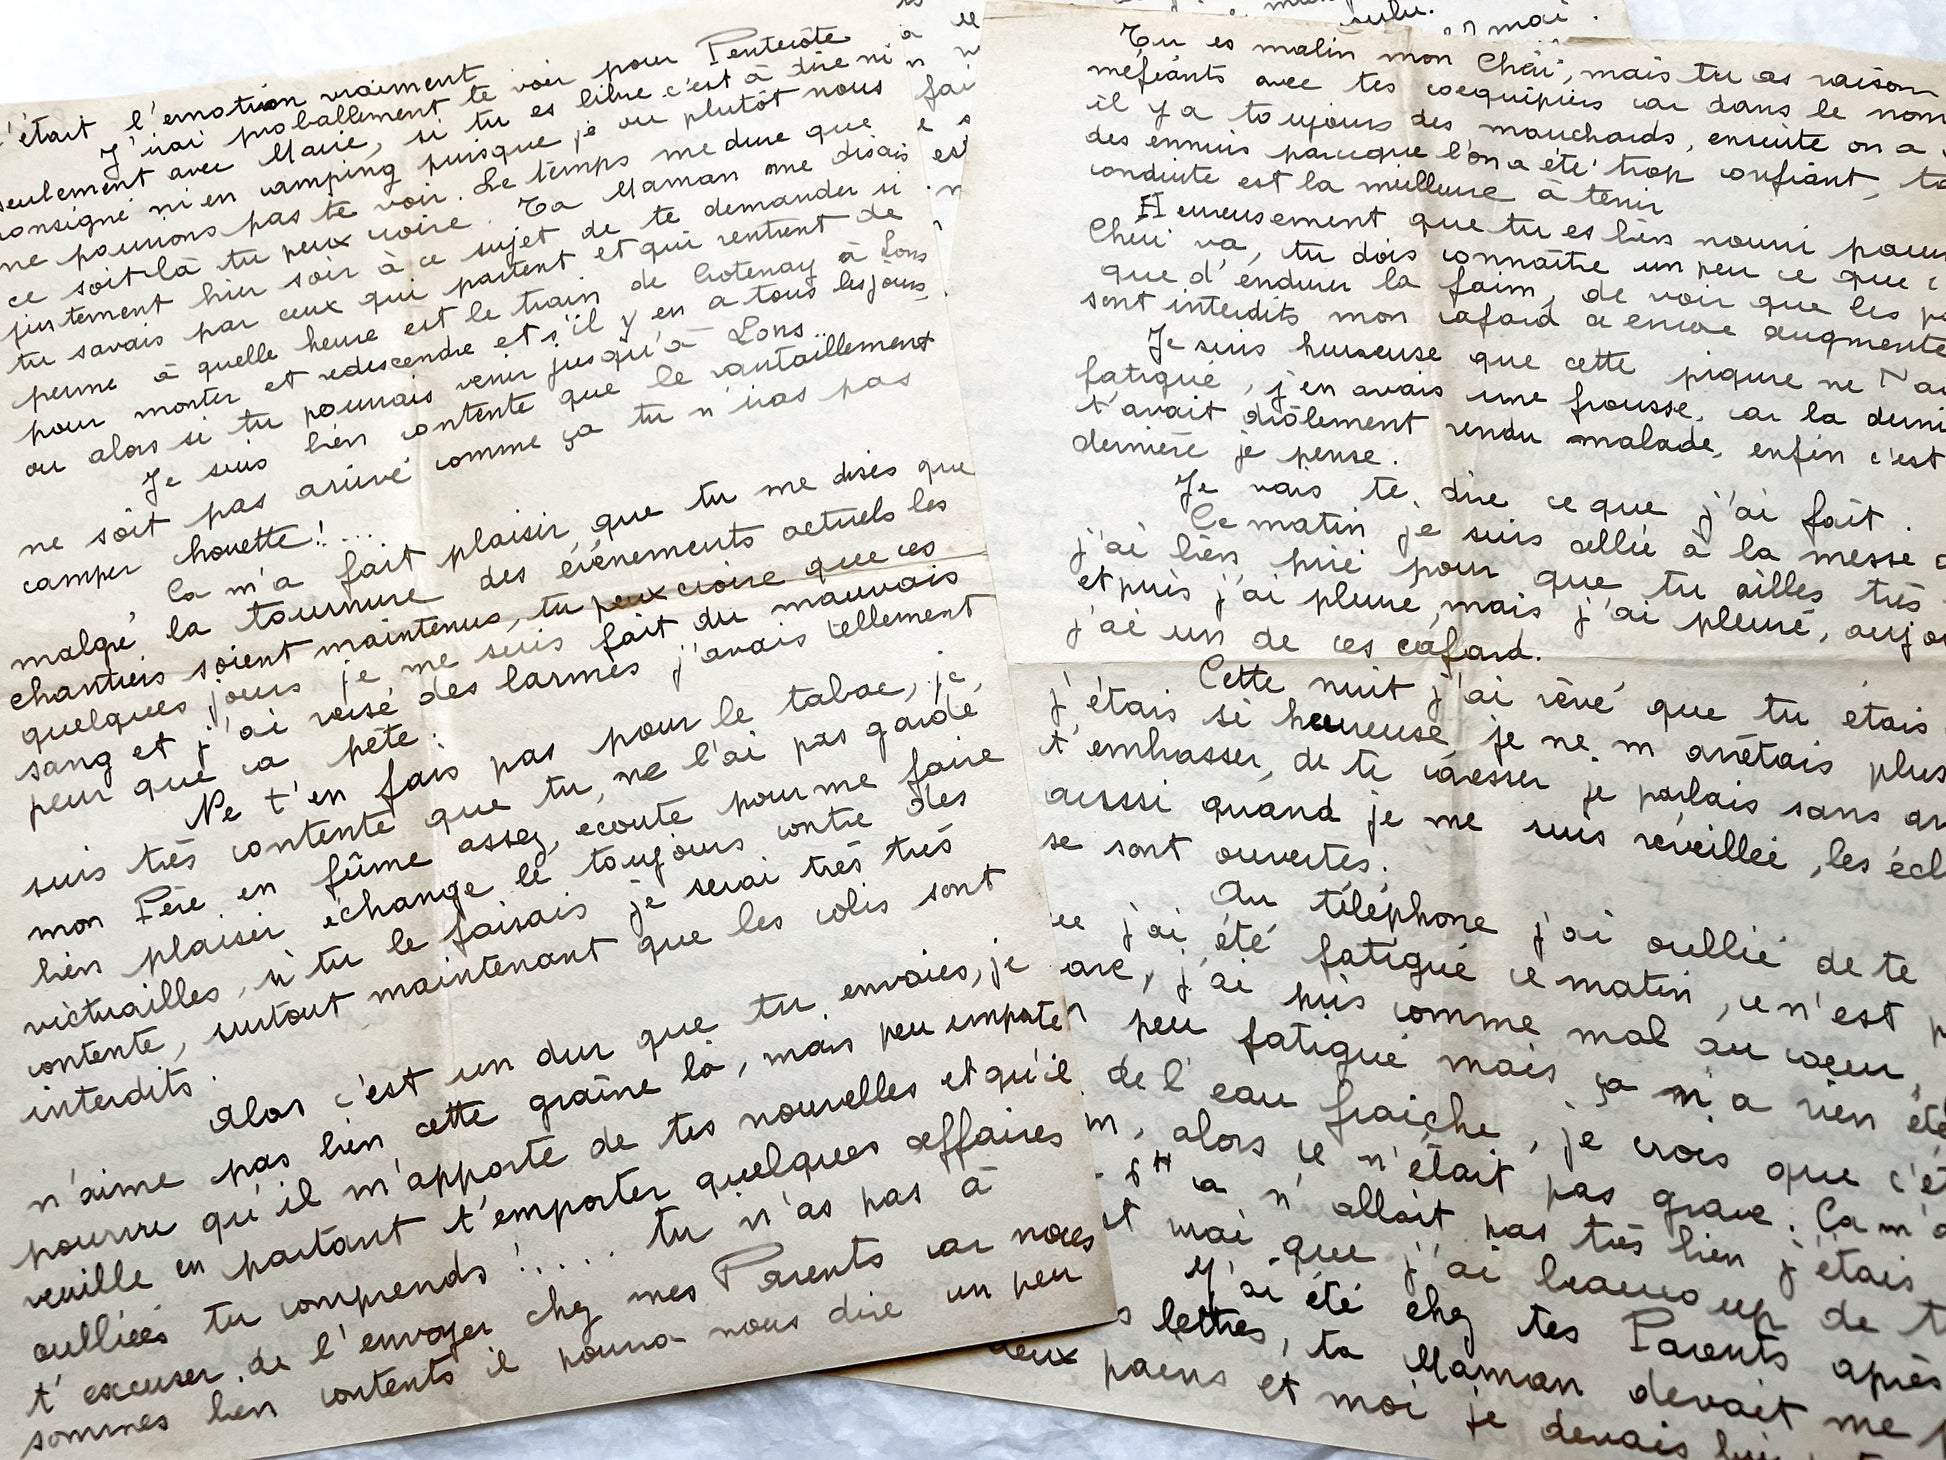 c'était l'emotion vraiment
J'irai proballement te voir pour Pentecôte
seulement avec Marie, si tu es libre c'est à dire ni
consigné ni en camping puisque je ou plutôt nous
ne pourrons pas te voir. Le temps me dure que
ce soit là tu peux croire. Ta Maman me disais
justement hier soir à ce sujet de te demander si
tu savais par ceux qui partent et qui rentrent de
perme à quelle heure est le train de Crotenay à Lons
pour monter et redescendre et s'il y en a tous les jours,
ou alors si tu pourrais venir jusqu'à Lons...
Je suis bien contente que le ravitaillement
ne soit pas arrivé comme ça tu n'iras pas
camper chouette!...
Ca m'a fait plaisir que tu me dises que
malgré la tournure des événements actuels les
chantiers soient maintenus, tu peux croire que ces
quelques jours je me suis fait du mauvais
sang et j'ai versé des larmes j'avais tellement
peur que ca pète.
Ne t'en fais pas pour le tabac, je
suis très contente que tu ne l'ai pas gardé,
mon Père en fûme assez, ecoute pour me faire
bien plaisir échange le toujours contre des
victuailles, si tu le faisais je serai très très
contente, surtout maintenant que les colis sont
interdits.
Alors c'est un dur que tu envoies, je
n'aime pas bien cette graine là, mais peu importe
pourvu qu'il m'apporte de tes nouvelles et qu'il
veuille en partant t'emporter quelques affaires
oulliées tu comprends!.... tu n'as pas à
t'excuser de l'envoyer chez mes Parents car nous
sommes bien contents il pourra nous dire un peu
mai.
Tu es malin mon Chéri, mais tu as raison
mefiants avec tes coequipiers car dans le nom
il y a toujours des mouchards, ensuite on a
des ennuis parceque l'on a été trop confiant, ta
conduite est la meilleure à tenir
Heureusement que tu es bien nourri pauv
Chéri va, tu dois connaître un peu ce que c
que d'endurer la faim, de voir que les
sont interdits mon cafard a encore augmenté
Je suis heureuse que cette piqure ne t'ai
fatigué, j'en avais une frousse, car la derni
t'avait drôlement rendu malade, enfin c'est
dernière je pense.
Je vais te dire ce que j'ai fait.
Ce matin je suis allée à la messe
j'ai bien prié pour que tu ailles très
et puis j'ai pleuré, mais j'ai pleuré, aujo
j'ai un de ces cafard.
Cette nuit j'ai rêvé que tu étais
j'étais si heureuse, je ne m'arrêtais plus
t'embrasser, de te caresser je parlais sans ar
aussi quand je me suis réveillée, les écl
se sont ouvertes.
Au téléphone j'ai oullié de te
j'ai été fatigué ce matin, ce n'est
j'ai pris comme mal au coeur,
peu fatigué mais ça m'a rien été
de l'eau fraiche, je crois que c'ét
alors ce n'était pas grave. Ca m'a
ca n'allait pas très bien j'étais
vrai que j'ai beaucoup de
J'ai été chez tes Parents après
lettres, ta Maman devait me
pneus et moi je devais lui